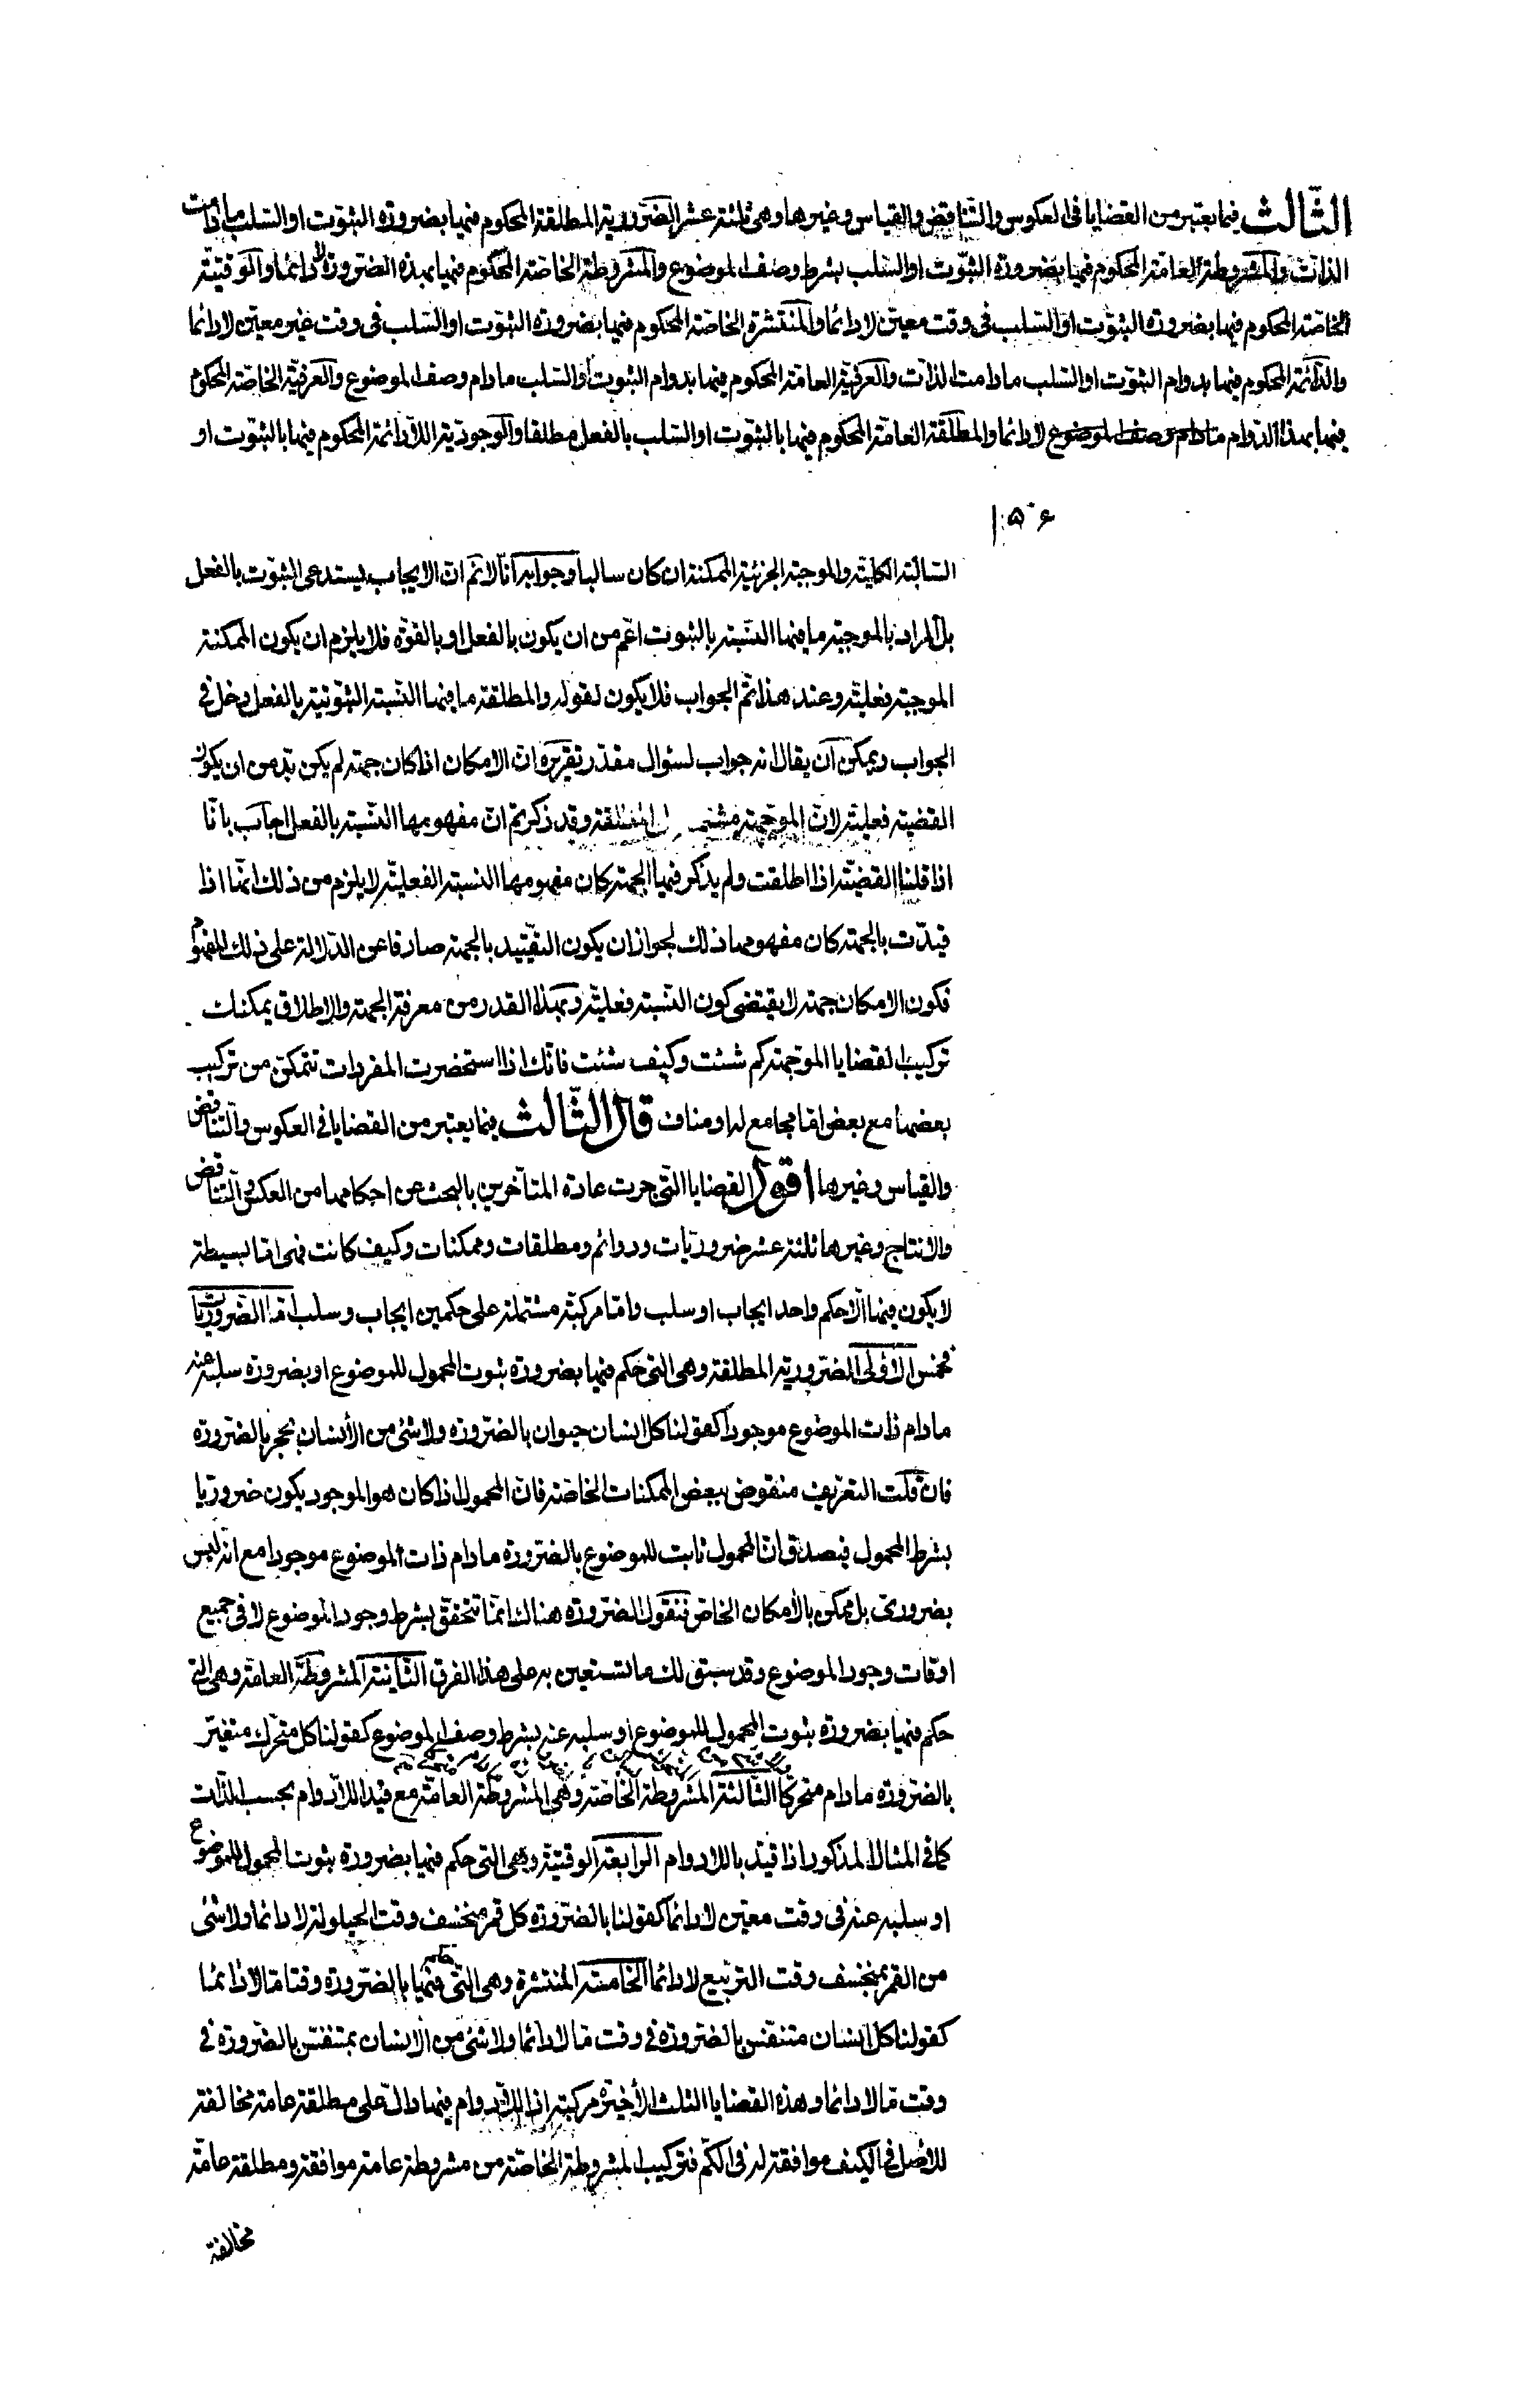 الثّالث فيما يعتبر من القضايا فى العكوس والتناقض والقياس وغيرها وهى ثلثة عشر الضرورية المطلقة المحكوم فيها بضرورة الثبوت او السّلب ما دامت
الذات والمشروطة العامة المحكوم فيها بضرورة الثبوت او السّلب بشرط وصف الموضوع والمشروطة الخاصّة المحكوم فيها بهذه الضرورة لا دائما والوقتيّة
الخاصّة المحكوم فيها بضرورة الثبوت او السّلب فى وقت معيّن لا دائما والمنتشرة الخاصّة المحكوم فيها بضرورة الثبوت او السّلب فى وقت غير معيّن لا دائما
والدّائمة المحكوم فيها بدوام الثبوت او السّلب ما دامت الذات والعرفيّة العامّة المحكوم فيها بدوام الثبوت او السّلب ما دام وصف الموضوع والعرفيّة الخاصّة المحكوم
فيها بهذا الدّوام ما دام وصف الموضوع لا دائما والمطلقة العامّة المحكوم فيها بالثبوت او السّلب بالفعل مطلقا والوجوديّة اللّادائمة المحكوم فيها بالثبوت او
السّالبة الكليّة والموجبة الجزئية الممكنة ان كان سالبا وجوابه انّا لا نم انّ الايجاب يستدعى الثبوت بالفعل
بل المراد بالموجبة ما فيها النّسبة بالثبوت اعّم من ان يكون بالفعل او بالقوّة فلا يلزم ان يكون الممكنة
الموجبة فعليّة وعند هذا تمّ الجواب فلا يكون لقوله والمطلقة ما فيها النّسبة الثبوتية بالفعل دخل فى
الجواب ويمكن ان يقال انه جواب لسؤال مقدّر تقريره انّ الامكان اذا كان جهة لم يكن بدّ من ان يكون
القضيّة فعليّة لانّ الموجّهة المطلقة وقد ذكرتم انّ مفهومها النّسبة بالفعل اجاب بانّا
اذا قلنا القضيّة اذا اطلقت ولم يذكر فيها الجهة كان مفهومها النسبة الفعليّة لا يلزم من ذلك انّها اذا
قيدّت بالجهة كان مفهومها ذلك لجواز ان يكون التقييد بالجهة صارفا عن الدّلالة على ذلك المفهوم
فكون الامكان جهة لا يقتضى كون النّسبة فعليّة وبهذا القدر من معرفة الجهة والاطلاق يمكنك
تركيب القضايا الموّجهة كم شئت وكيف شئت فانّك اذا استحضرت المفردات تتمكّن من تركيب
بعضها مع بعض امّا مجامع له او مناف قال الثّالث فيما يعتبر من القضايا فى العكوس والتّناقض
والقياس وغيرها اقول القضايا الّتى جرت عادة المتأخرين بالبحث عن احكامها من العكس والتّناقض
والانتاج وغيرها ثلثة عشر ضروريّات ودوائم ومطلقات وممكنات وكيف كانت فهى امّا بسيطة
لا يكون فيها الّا حكم واحد ايجاب او سلب وامّا مركبّة مشتملة على حكمين ايجاب وسلب امّا الضّروريّات
فخمس الاولى الضّرورية المطلقة وهى التى حكم فيها بضرورة ثبوت المحمول للموضوع او بضرورة سلبه عنه
ما دام ذات الموضوع موجودا كقولنا كل انسان حيوان بالضّرورة ولا شئ من الأنسان بحجر بالضرورة
فان قلت التعريف منقوض ببعض الممكنات الخاصّة فانّ المحمول اذا كان هو الموجود يكون ضروريّا
بشرط المحمول فيصدق انّ المحمول ثابت للموضوع بالضّرورة ما دام ذات الموضوع موجودا مع انّه ليس
بضرورىّ بل ممكن بالأمكان الخاصّ فنقول الضّرورة هناك انّما تتحقّق بشرط وجود الموضوع لا فى جميع
اوقات وجود الموضوع وقد سبق لك ما تستعين به على هذا الفرق الثّانية المشروطة العامّة وهى التى
حكم فيها بضرورة ثبوت المحمول للموضوع او سلبه عنه بشرط وصف الموضوع كقولنا كل متحرّك متغيّر
بالضّرورة ما دام متحركّا الثّالثة المشروطة الخاصّة وهى المشروطة العامّة مع قيد اللّادوام بحسب الذّات
كما فى المثال المذكور اذا قيّد باللادوام الرابعة الوقتيّة وهى التى حكم فيها بضرورة ثبوت المحمول للموضوع
او سلبه عنه فى وقت معيّن لا دائما كقولنا بالضّرورة كل قمر منخسف وقت الحيلولة لا دائما ولا شئ
من القمر بمنخسف وقت التربيع لا دائما الخامسة المنتشرة وهى التّى حكم فيها بالضّرورة وقتا مّا لا دائما
كقولنا كل انسان متنفّس بالضّرورة فى وقت مّا لا دائما ولا شئ من الانسان بمتنفّس بالضّرورة فى
وقت مّا لا دائما وهذه القضايا الثلث الأخيرة مركبّة اذ اللّادوام فيها دالّ على مطلقة عامة مخالفة
للأصل فى الكيف موافقة له فى الكمّ فتركيب المشروطة الخاصّة من مشروطة عامة موافقة ومطلقة عامّة
مخالفة